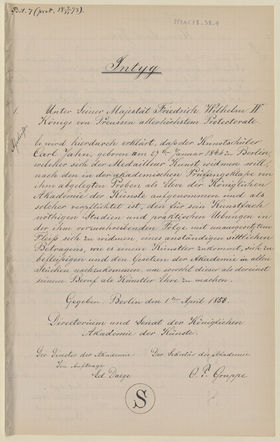 Bil. 7 (prot. 18 2/11 73)
Intyg
Unter Seiner Majestät Friedrich Wilhelm IV
Königs von Preussen allerhöchstem Protectorate
wird hierdurch erklärt, dass der Kunstschüler
Carl Jahn, geboren am Januar in Berlin,
welcher sich der Medailleur Kunst widmen will,
nach den in der academischen Prüfungsklasse von
ihm abgelegten Proben als Eleve der Königlichen
Akademie der Künste aufgenommen und als
solcher verpflichtet ist, den für sein Kunstfach
nöthigen Studien und praktischen Uebungen in
der ihm vorzunehmenden Folge mit unausgesetztem
Fleiss sich zu widmen, eines anständigen sittlichen
Betragens, wie es einem Künstler zukommt, sich zu
befleissigen und den Gesetzen der Akademie in allen
Stücken nachzukommen, um sowohl dieser als dereinst
seinem Beruf als Künstler Ehre zu machen.
Gegeben Berlin den 1ten April 1858.
Directorium und Senat der Königlichen
Akademie der Künste.
Der Director der Akademie Der Sekretär der Akademie
Im Auftrage
Ed. Daege O. F. Gruppe
S